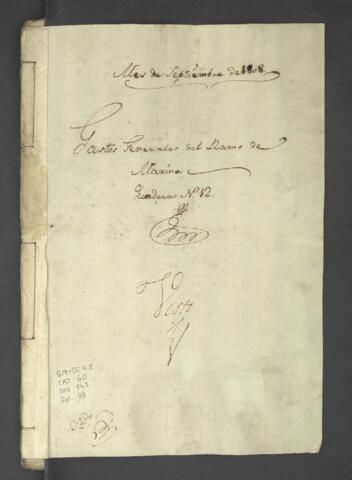 Mes de Septiembre de 1808.
Gastos Generales del Ramo de
Marina
Quaderno Nº. 12.
Visto
GM-CO 4.2
CAJ 60
DOC 147
Fol. 78